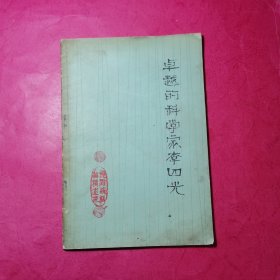 卓越的科学家李四光